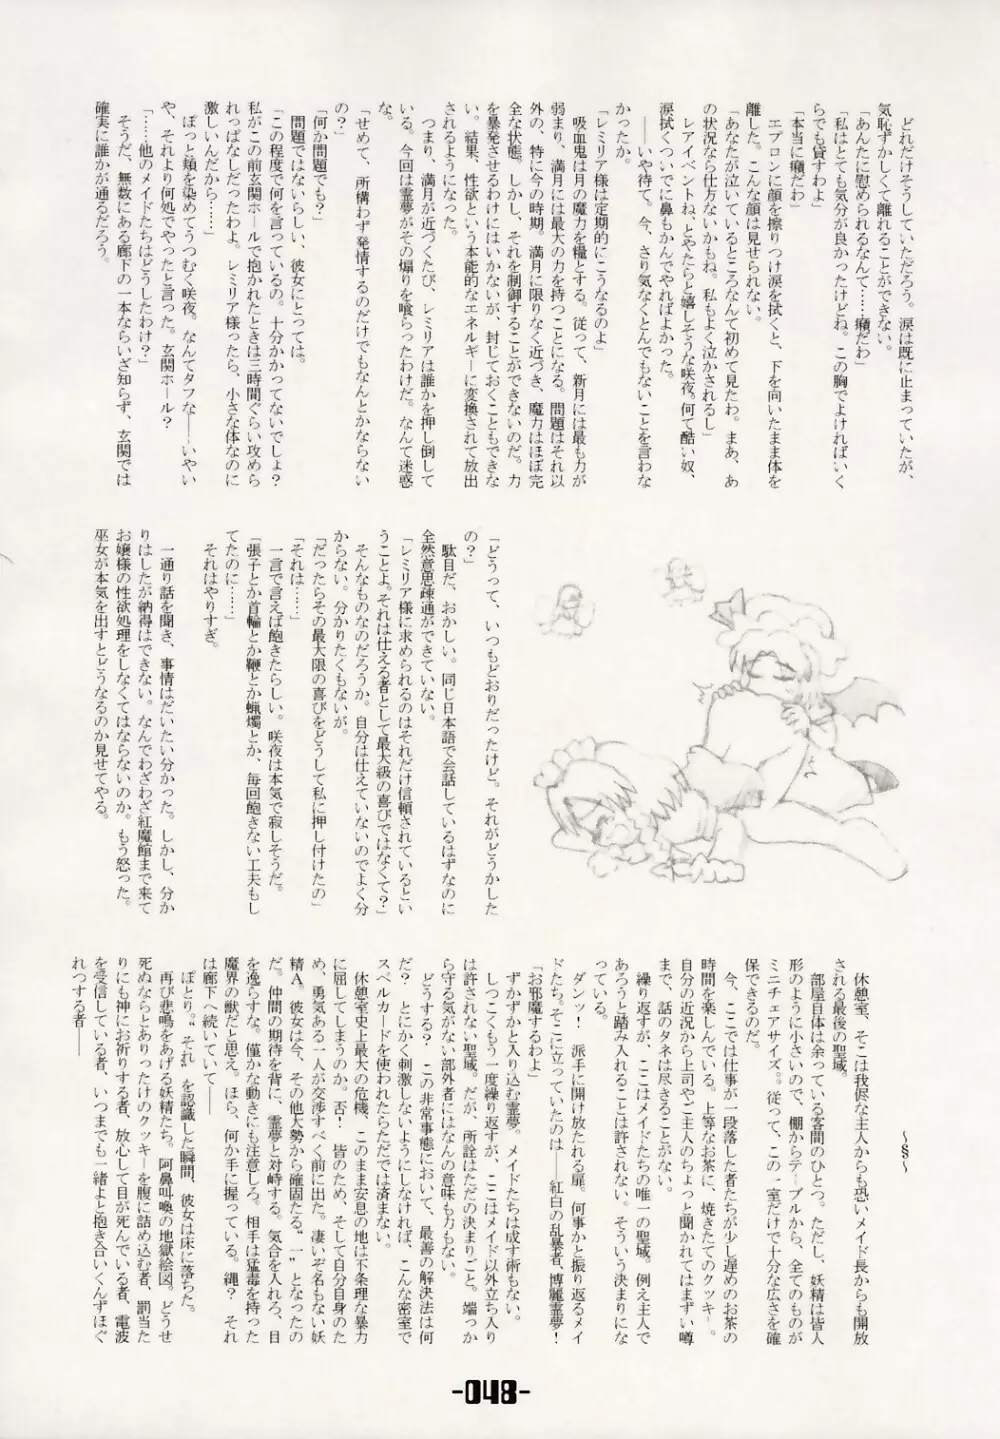 どれだけそうしていただろう。涙は既に止まっていたが、
気恥ずかしくて離れることができない。
「あんたに慰められるなんて……癪だわ」
「私はとても気分が良かったけどね。この胸でよければいく
らでも貸すわよ」
「本当に癪だわ」
　エプロンに顔を擦りつけ涙を拭くと、下を向いたまま体を
離した。こんな顔は見せられない。
「あなたが泣いているところなんて初めて見たわ。まあ、あ
の状況なら仕方ないかもね。私もよく泣かされるし」
　レアイベントね、とやたらと嬉しそうな咲夜。何て酷い奴、
涙拭くついでに鼻もかんでやればよかった。
　――いや待て。今、さり気なくとんでもないことを言わな
かったか。
「レミリア様は定期的にこうなるのよ」
　吸血鬼は月の魔力を糧とする。従って、新月には最も力が
弱まり、満月には最大の力を持つことになる。問題はそれ以
外の、特に今の時期。満月に限りなく近づき、魔力はほぼ完
全な状態。しかし、それを制御することができないのだ。力
を暴発させるわけにはいかないが、封じておくこともできな
い。結果、性欲という本能的なエネルギーに変換されて放出
されるようになった。
　つまり、満月が近づくたび、レミリアは誰かを押し倒して
いる。今回は霊夢がその煽りを喰らったわけだ。なんて迷惑
な。
「せめて、所構わず発情するのだけでもなんとかならない
の？」
「何か問題でも？」
　問題ではないらしい、彼女にとっては。
「この程度で何を言っているの。十分かかってないでしょ？
私がこの前玄関ホールで抱かれたときは三時間ぐらい攻めら
れっぱなしだったわよ。レミリア様ったら、小さな体なのに
激しいんだから……」
　ぽっと頬を染めてうつむく咲夜。なんてタフな――いやい
や、それより何処でやったと言った。玄関ホール？
「……他のメイドたちはどうしたわけ？」
　そうだ、無数にある廊下の一本ならいざ知らず、玄関では
確実に誰かが通るだろう。
「どうって、いつもどおりだったけど。それがどうかした
の？」
　駄目だ、おかしい。同じ日本語で会話しているはずなのに
全然意思疎通ができていない。
「レミリア様に求められるのはそれだけ信頼されているとい
うことよ。それは仕える者として最大級の喜びではなくて？」
　そんなものなのだろうか。自分は仕えていないのでよく分
からない。分かりたくもないが。
「だったらその最大限の喜びをどうして私に押し付けたの」
「それは……」
　一言で言えば飽きたらしい。咲夜は本気で寂しそうだ。
「張子とか首輪とか鞭とか蝋燭とか、毎回飽きない工夫もし
てたのに……」
　それはやりすぎ。
　一通り話を聞き、事情はだいたい分かった。しかし、分か
りはしたが納得はできない。なんでわざわざ紅魔館まで来て
お嬢様の性欲処理をしなくてはならないのか。もう怒った。
巫女が本気を出すとどうなるのか見せてやる。
～§～
　休憩室、そこは我儘な主人からも恐いメイド長からも開放
される最後の聖域。
　部屋自体は余っている客間のひとつ。ただし、妖精は皆人
形のように小さいので、棚からテーブルから、全てのものが
ミニチェアサイズ。従って、この一室だけで十分な広さを確
保できるのだ。
　今、ここでは仕事が一段落した者たちが少し遅めのお茶の
時間を楽しんでいる。上等なお茶に、焼きたてのクッキー。
自分の近況から上司やご主人のちょっと聞かれてはまずい噂
まで、話のタネは尽きることがない。
　繰り返すが、ここはメイドたちの唯一の聖域。例え主人で
あろうと踏み入れることは許されない。そういう決まりにな
っている。
　ダンッ！　派手に開け放たれる扉。何事かと振り返るメイ
ドたち。そこに立っていたのは――紅白の乱暴者、博麗霊夢！
「お邪魔するわよ」
　ずかずかと入り込む霊夢。メイドたちは成す術もない。
　しつこくもう一度繰り返すが、ここはメイド以外立ち入り
は許されない聖域。だが、所詮はただの決まりごと。端っか
ら守る気がない部外者にはなんの意味も力もない。
　どうする？　この非常事態において、最善の解決法は何
だ？　とにかく刺激しないようにしなければ、こんな密室で
スペルカードを使われたらただでは済まない。
　休憩室史上最大の危機、このまま安息の地は不条理な暴力
に屈してしまうのか。否！　皆のため、そして自分自身のた
め、勇気ある一人が交渉すべく前に出た。凄いぞ名もない妖
精Ａ。彼女は今、その他大勢から確固たる“一”となったの
だ。仲間の期待を背に、霊夢と対峙する。気合を入れろ、目
を逸らすな。僅かな動きにも注意しろ。相手は猛毒を持った
魔界の獣だと思え。ほら、何か手に握っている。縄？　それ
は廊下へ続いていて――
　ぽとり。“それ”を認識した瞬間、彼女は床に落ちた。
　再び悲鳴をあげる妖精たち。阿鼻叫喚の地獄絵図。どうせ
死ぬならとありったけのクッキーを腹に詰め込む者、罰当た
りにも神にお祈りする者、放心して目が死んでいる者、電波
を受信している者、いつまでも一緒よと抱き合いくんずほぐ
れつする者――
-048-